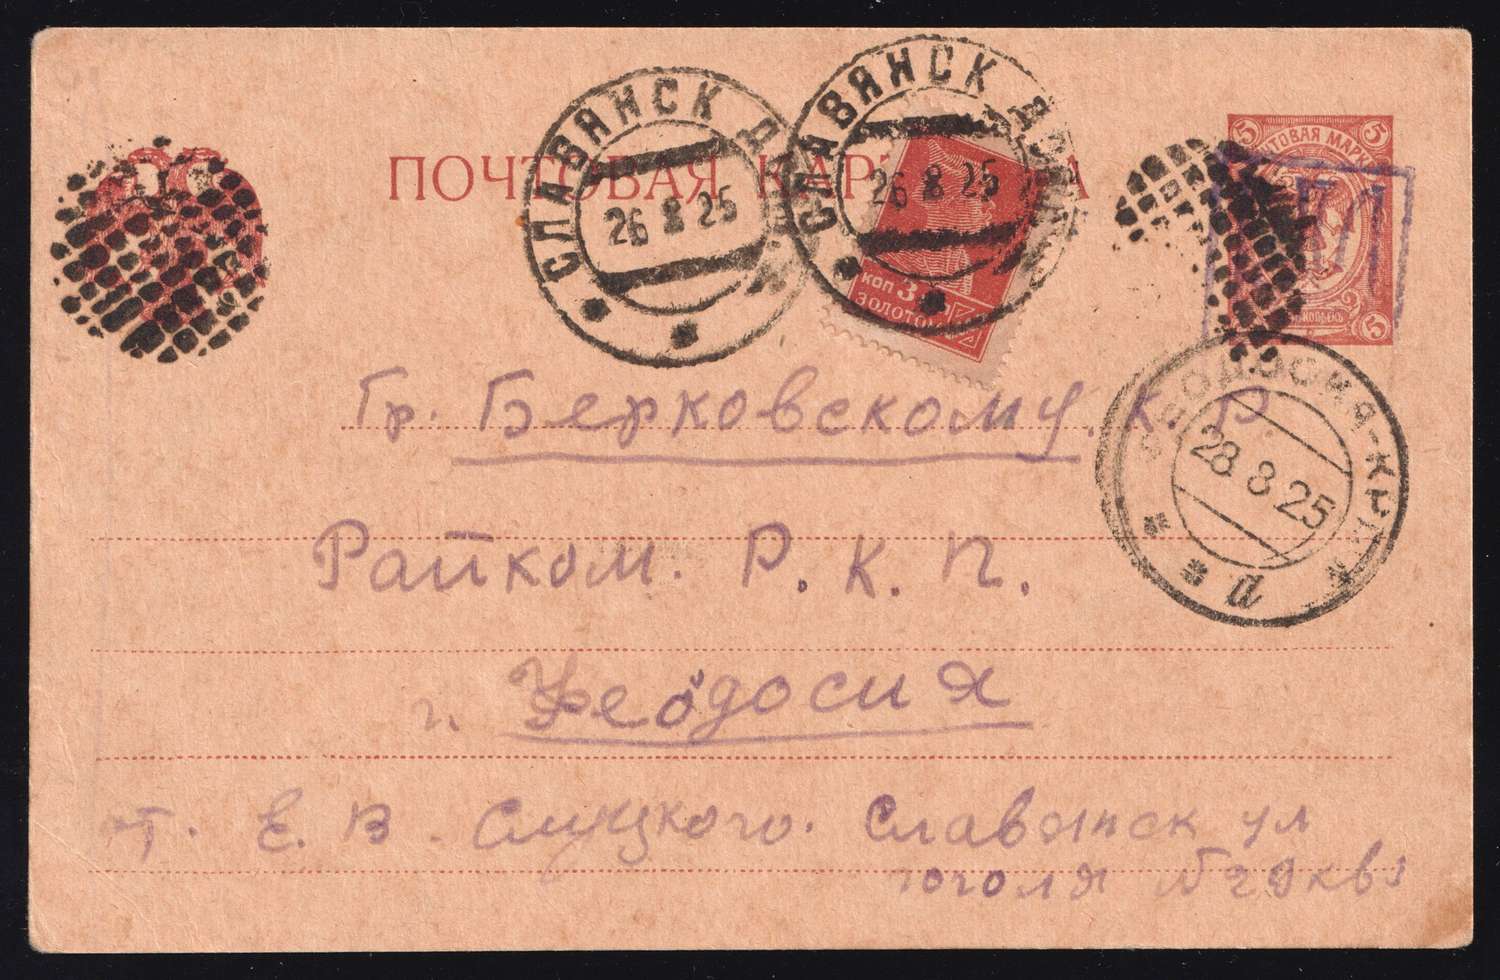 ПОЧТОВАЯ КАРТОЧКА
СЛАВЯНСК
26 8 25
СЛАВЯНСК
26 8 25
КОП 3
ЗОЛОТОМ
5 ПОЧТОВАЯ МАРКА 5
5
ФЕОДОСИЯ-КРЫМ
28 8 25
Гр. Берковскому. К. Р
Райком. Р. К. П.
г. Феодосия
от. Е. В. Слуцкого. Славянск ул
Гоголя